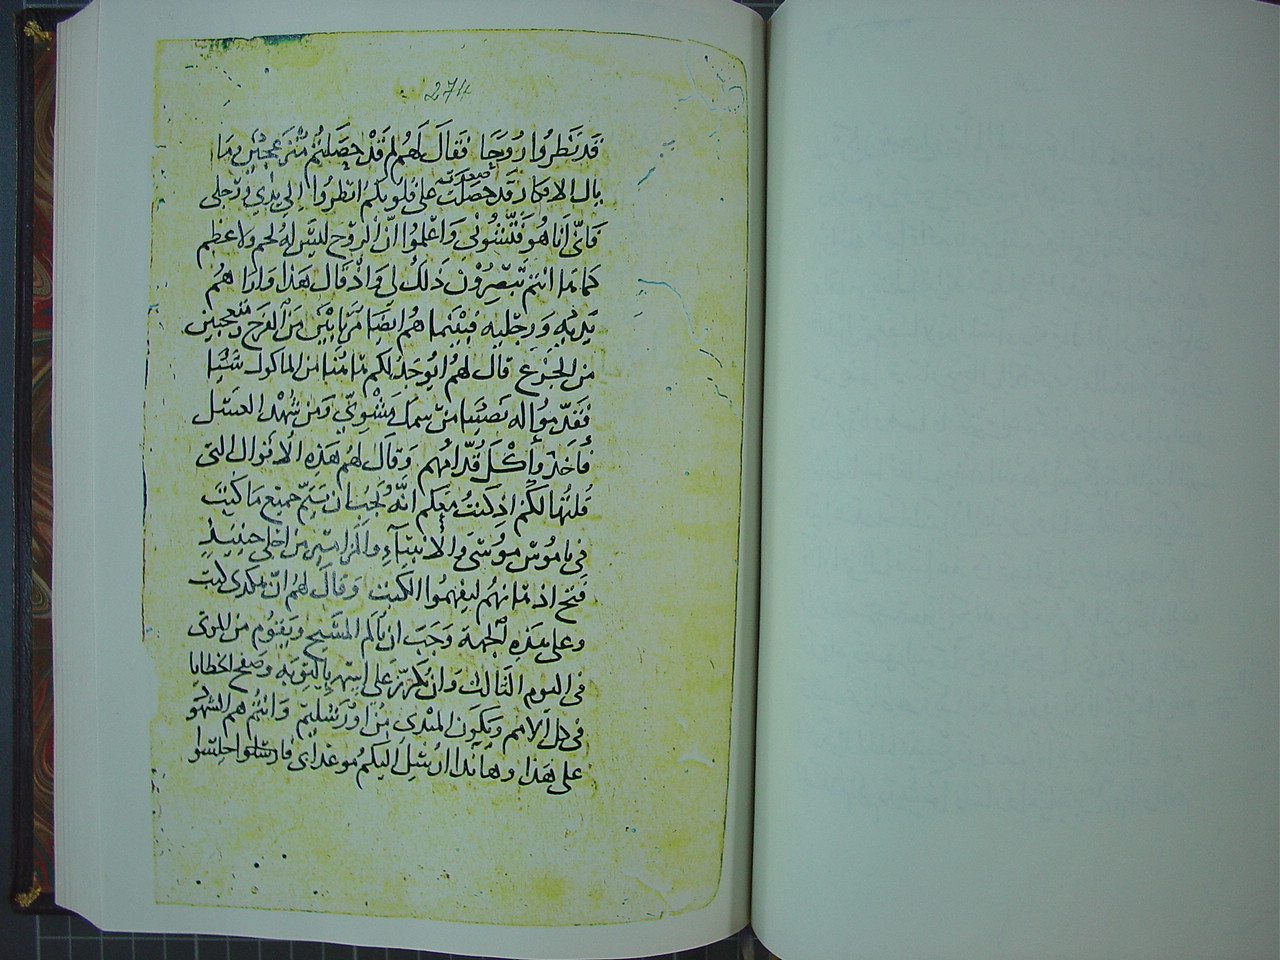 274
قَد نَظَرُوا رُوحًا فَقَالَ لَهُم لِم قَدْ حَصَلتُم مُتَزَعجِينَ وَمَا
بال الافكار قَد حَصَلَت صعدت على قلوبكم انظرُوا إِلى يَدِي ورجلى
فَانّى أنا هُو فَتِّشُونِي وَاعْلمُوا انّ الروح ليسَ لهُ لحم ولا عظم
كما ما انتم تبصرُون ذلك لِي وَاذْ قال هَذا واراهُم
يَديهِ وَرجليهِ فبَينما هُم ايضا مرتابين مَن الفَرَح ومتعجبين
من الجَزع قال لهم ايُوجَدُ لكم هاهُنا من الماكول شَيْيا
فقدّمُوا له نصيبا من سمك مَشوىّ وَمن شهْد العسَل
فاخذ وأكَلَ قُدّامهُم وَقال لهُم هَذه الاقوال التى
قُلتُها لَكُم اذ كنتُ مَعكم انّهُ يجب ان يَتمّ جميع ما كُتِبَ
فى نامُوس موُسَى والانبيَآءِ والمزامير من اجلى حينيذٍ
فتح اذهانهُم ليفهموا الكتب وقالَ لهم انّ هكذى كتب
وعلى هذهِ الجهة وَجَبَ ان يألم المسَيح ويَقوُم من الموتى
فى اليوم الثالث وَان يُكرَز على اسمهِ بالتوبهِ وصفح الخطايا
فى كل الامم ويَكون المبْدى منْ اورَشليم وَانتُم هم الشهُود
على هَذا وهانذا ارُسلُ اليكمُ موعد اى فارسلوا جلسُوا